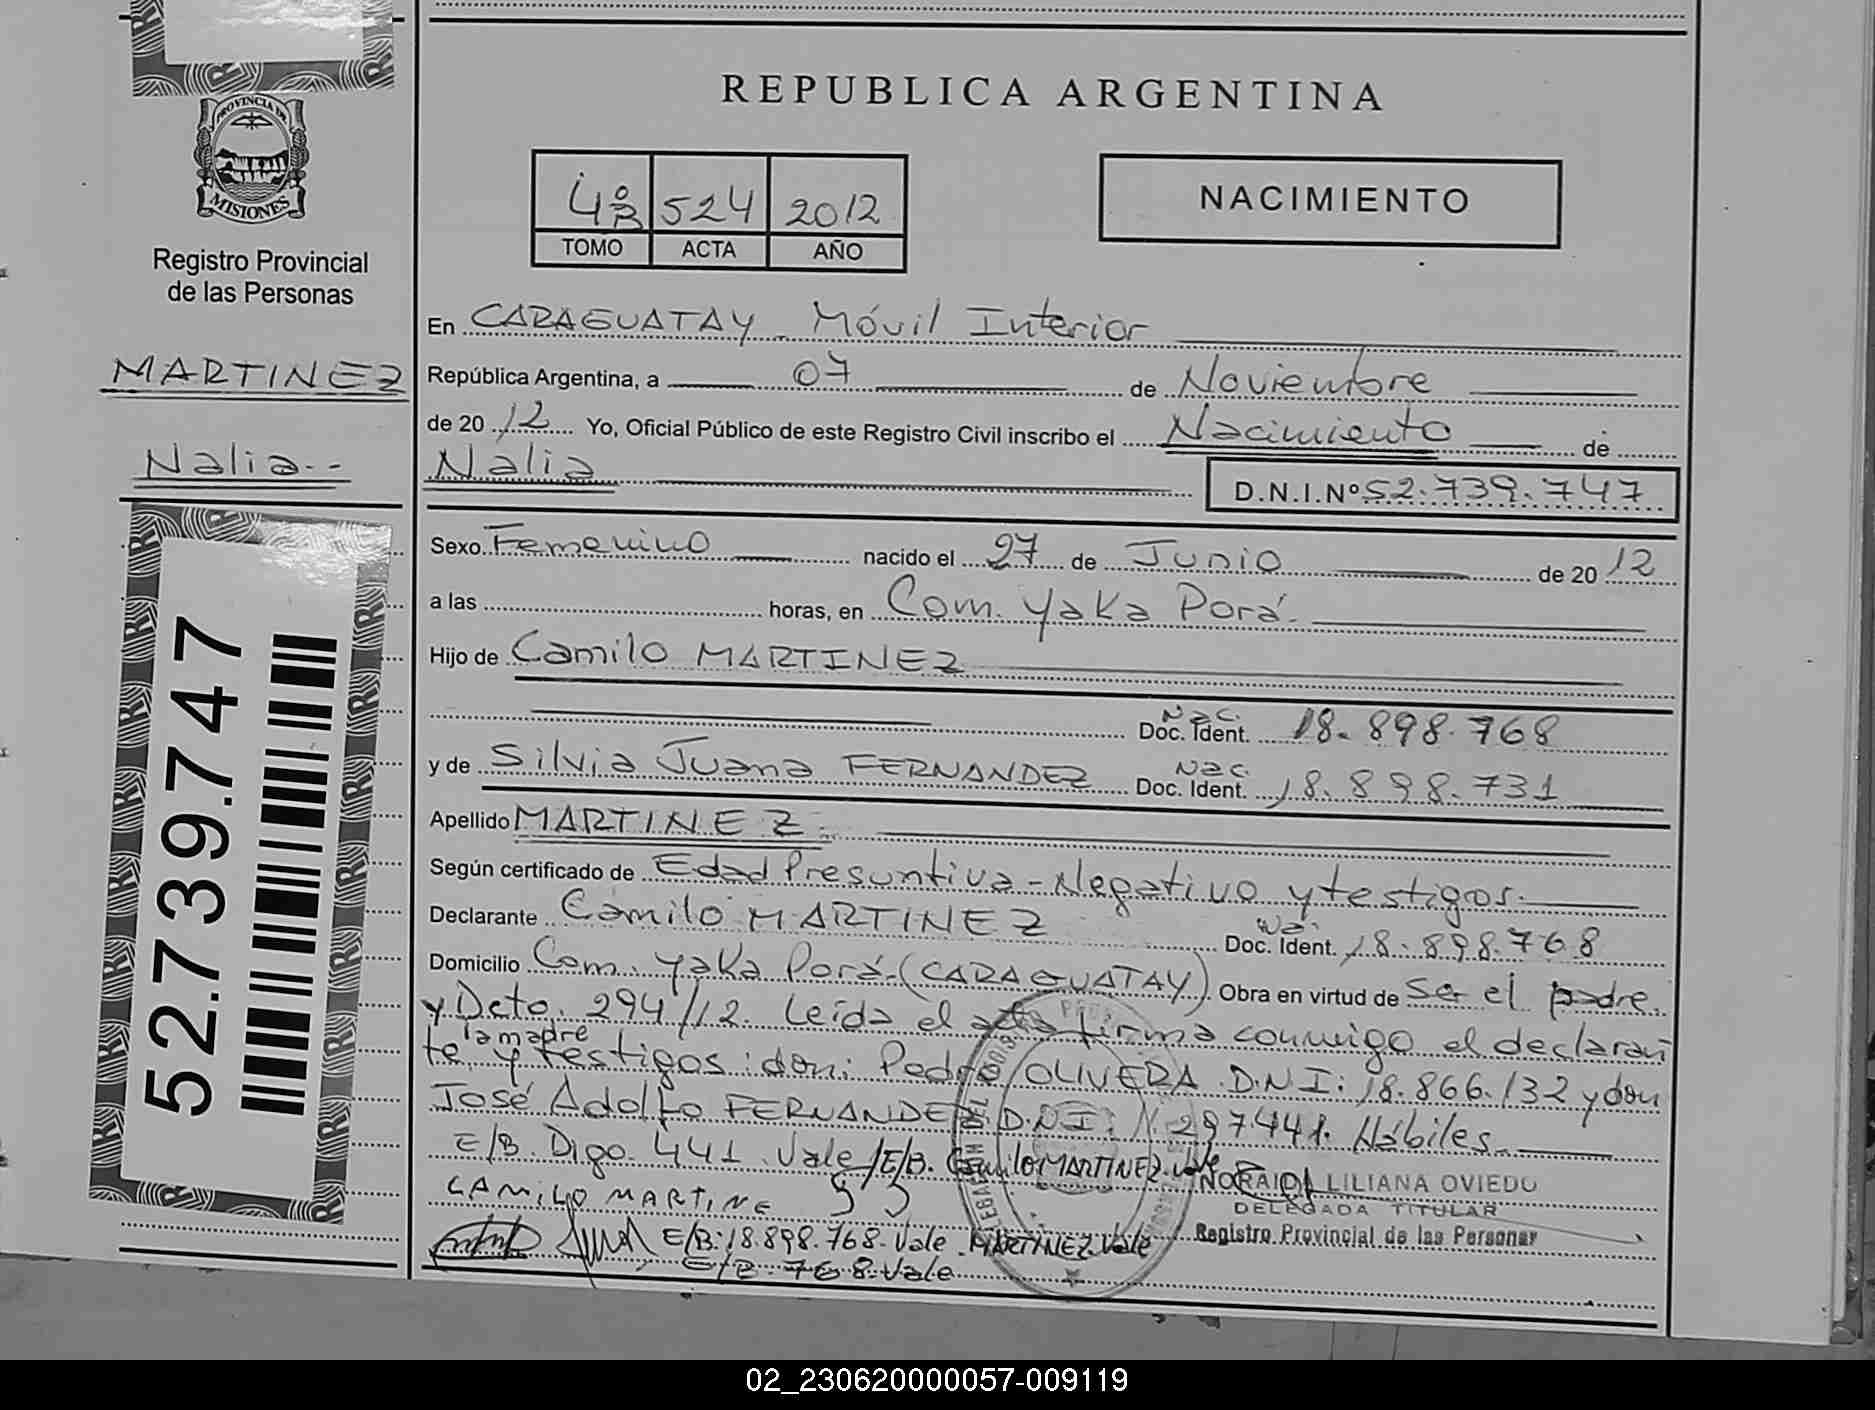 REPUBLICA ARGENTINA
PROVINCIA DE
MISIONES
Registro Provincial
de las Personas
MARTINEZ
Nalia--
52.739.747
4º B 524 2012
TOMO ACTA AÑO
NACIMIENTO
En CARAGUATAY - Móvil Interior
República Argentina, a 07 de Noviembre
de 20 12 Yo, Oficial Público de este Registro Civil inscribo el Nacimiento de
Nalia
D.N.I.Nº 52.739.747
Sexo Femenino nacido el 27 de Junio de 20 12
a las horas, en Com. Yaka Porá.
Hijo de Camilo MARTINEZ
Nac.
Doc. Ident. 18.898.768
y de Silvia Juana FERNANDEZ Nac. Doc. Ident. 18.898.731
Apellido MARTINEZ.
Según certificado de Edad Presuntiva - Negativo y testigos.
Declarante Camilo MARTINEZ Doc. Ident. 18.898.768
Domicilio Com. Yaka Porá-(CARAGUATAY) Obra en virtud de ser el padre.
y Dcto. 294/12. Leída el acta firma conmigo el declaran
te, la madre y testigos: don: Pedro OLIVERA D.N.I: 18.866.132 y don
José Adolfo FERNANDEZ D.N.I: N. 297.441. Hábiles.
E/B. Digo 441. Vale/E/B. Camilo MARTINEZ. Vale
CAMILO MARTINE
NORAIDA LILIANA OVIEDO
DELEGADA TITULAR
Registro Provincial de las Personas
E/B: 18.898.768. Vale. MARTINEZ. Vale
E/B. 768. Vale
02_230620000057-009119